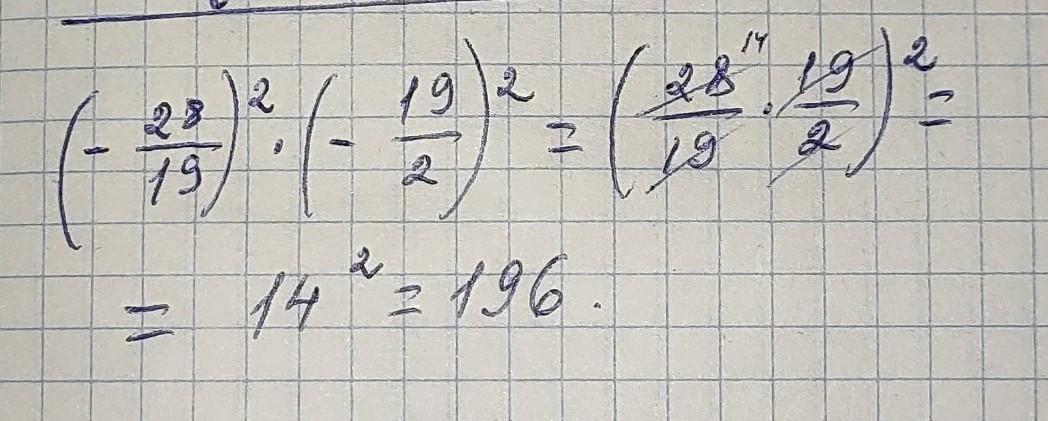 (- 28/19)² · (- 19/2)² = (28/19 14 · 19/2)² =
= 14² = 196.